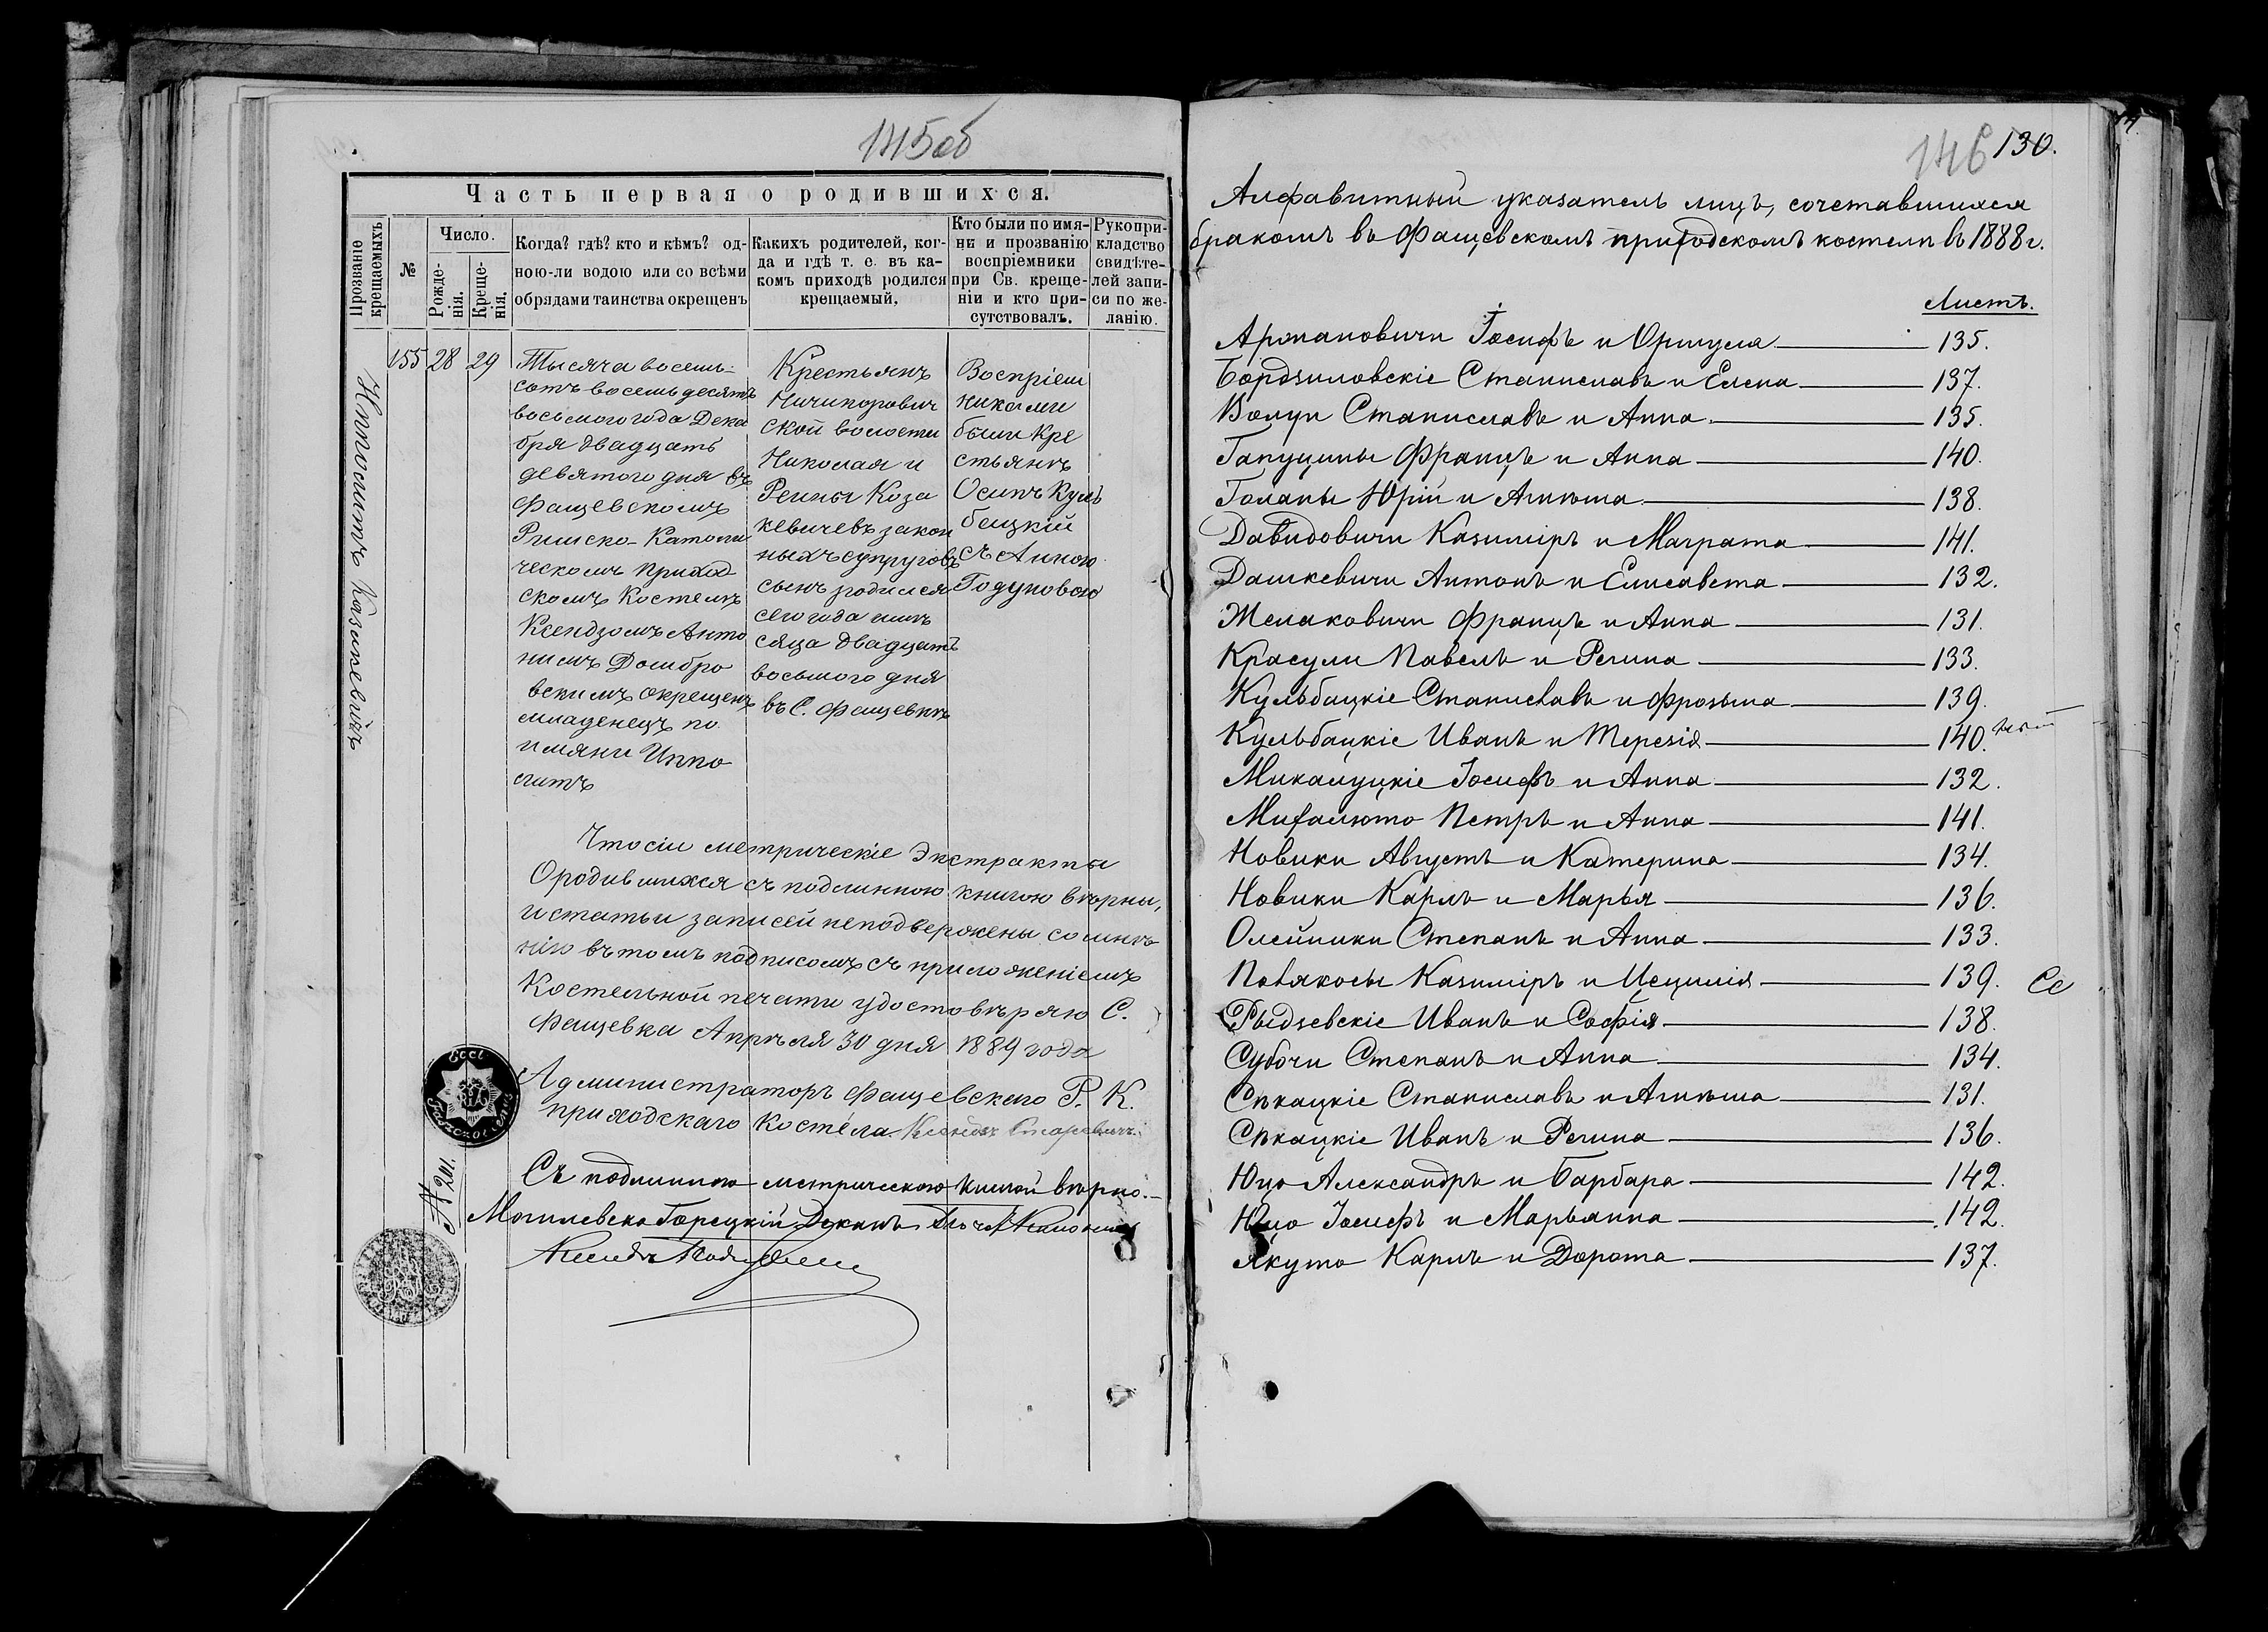 145об
Часть первая о родившихся.
Прозваніе крещаемыхъ
№
Число.
Рожде-
нія.
Креще-
нія.
Когда? гдѣ? кто и кѣмъ? од-
ною-ли водою или со всѣми
обрядами таинства окрещенъ
Какихъ родителей, ког-
да и гдѣ т. е. въ ка-
комъ приходѣ родился
крещаемый,
Кто были по имя-
ни и прозванію
воспріемники
при Св. креще-
ніи и кто при-
сутствовалъ.
Рукопри-
кладство
свидѣте-
лей запи-
си по же-
ланію.
Ипполитъ Казакевичъ
155 28 29
Тысяча восемь-
сотъ восемьдесятъ
восьмого года Дека
бря двадцать
девятого дня въ
Фащевскомъ
Римско-Католи
ческомъ Приход
скомъ Костелѣ
Ксендзомъ Анто
ніемъ Домбро
вскимъ окрещенъ
младенецъ по
имяни Иппо
литъ
Крестьянъ
Ничипорович
ской волости
Николая и
Регины Коза
кевичевъ закон
ныхъ супруговъ
сынъ родился
сего года мѣ
сяца двадцать
восьмого дня
въ С. Фащевкѣ
Воспріем
никами
были Кре
стьянѣ
Осипъ Куль
бацкій
съ Анною
Годуновою
Что сіи метрическіе Экстракты
О родившихся съ подлинною книгою вѣрны,
и статьи записей неподвержены сомнѣ
нію въ томъ подписомъ съ приложеніемъ
Костельной печати удостовѣряю С.
Фащевка Апрѣля 30 дня 1889 года
Администраторъ Фащевского Р. К.
приходскаго Костёла
Съ подлинною метрическою книгой вѣрно.-
Могилевско Горецкій Деканъ
№ 102.
146 130.
Алфавитный указатель лицъ, сочетавшихся
бракомъ въ Фащевскомъ приходскомъ костелѣ въ 1888 г.
Листъ.
Армановичи Іосифъ и Оршуля 135.
Бордзиловскіе Станиславъ и Елена 137.
Волуи Станиславъ и Анна 135.
Гапуцины Францъ и Анна 140.
Голаны Юрій и Агнѣша 138.
Давидовичи Казиміръ и Маграта 141.
Дашкевичи Антонъ и Елисавета 132.
Желаковичи Францъ и Анна 131.
Красули Павелъ и Регина 133.
Кульбацкіе Станиславъ и Фрозына 139.
Кульбацкіе Иванъ и Терезія 140.
Микалуцкіе Іосифъ и Анна 132.
Михалюто Петръ и Анна 141.
Новики Августъ и Катерина 134.
Новики Карлъ и Марья 136.
Олейники Степанъ и Анна 133.
Повякосы Казиміръ и Цецилія 139.
Рыдзевскіе Иванъ и Софія 138.
Субочи Степанъ и Анна 134.
Сѣкацкіе Станиславъ и Агнѣша 131.
Сѣкацкіе Иванъ и Регина 136.
Юцо Александръ и Барбара 142.
Юцо Іосифъ и Марьанна 142.
Якуто Карлъ и Дорота 137.